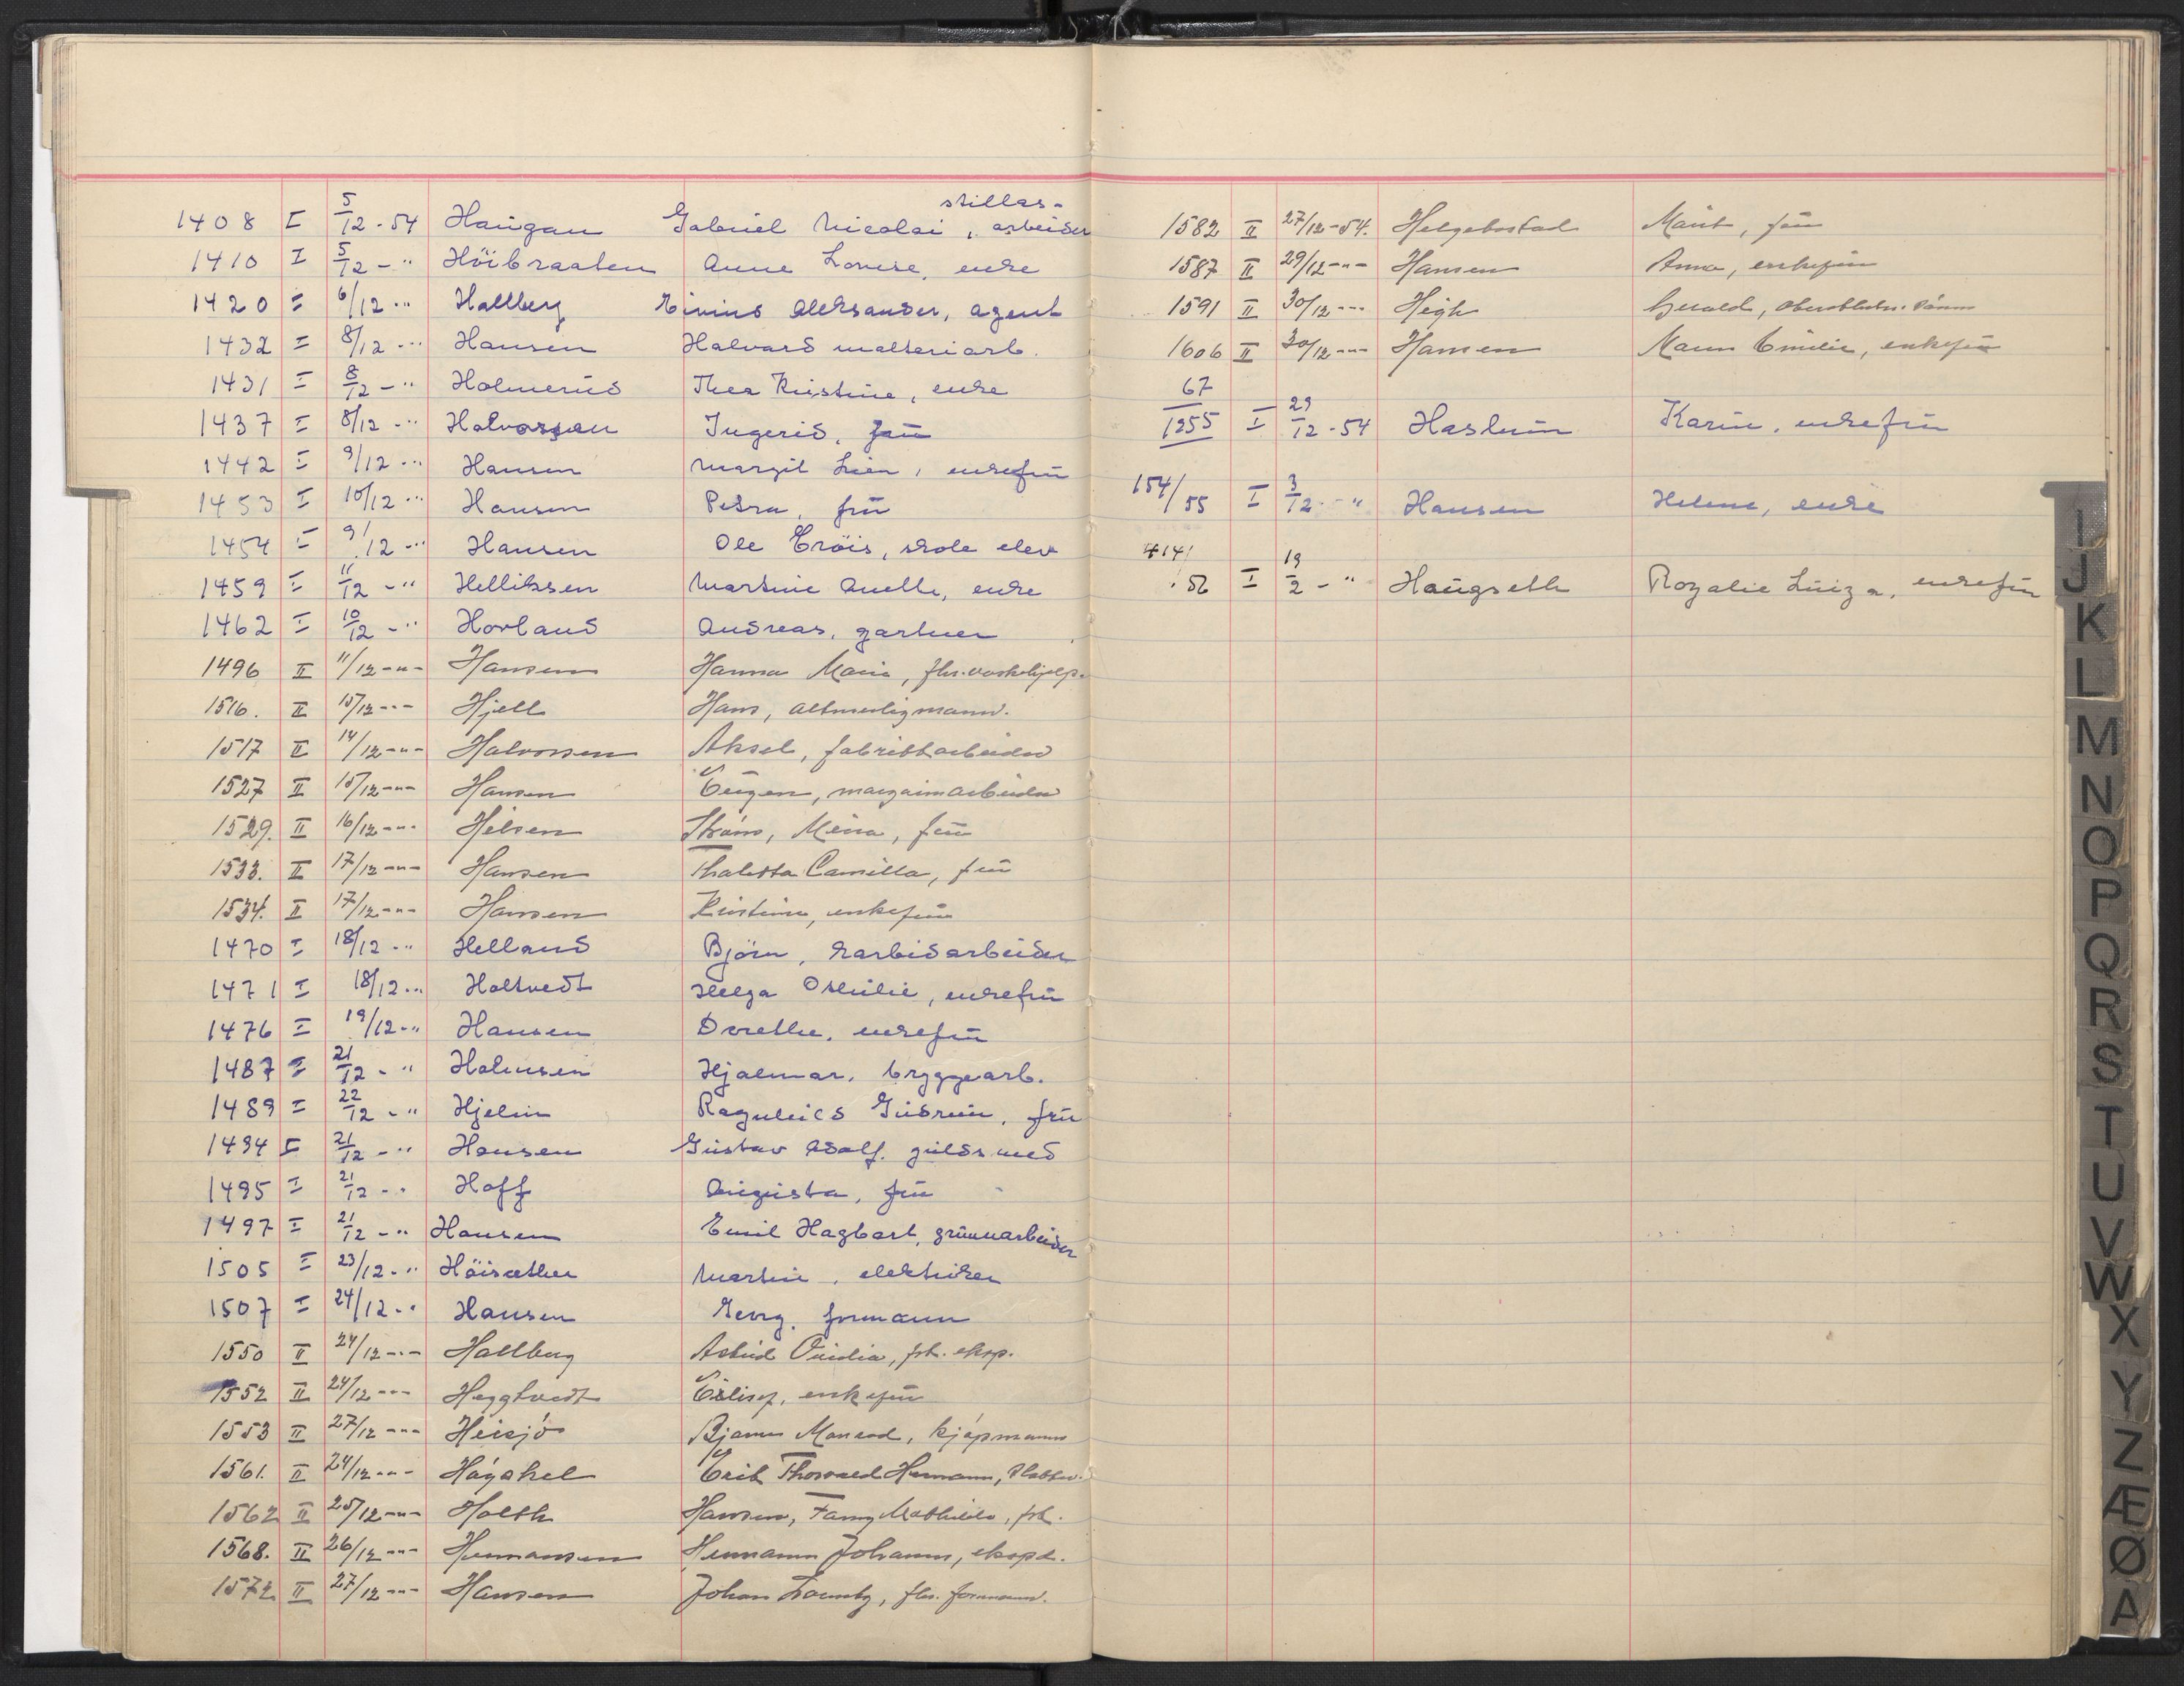 stillas-
1408 I 5/12-54 Haugan Gabriel Nicolai, arbeider
1410 I 5/12 - " Höibraaten Anne Lovise, enke
1420 I 6/12 - " Hallberg Eivind Aleksander, agent
1432 I 8/12 - " Hansen Halvard malteriarb.
1431 I 8/12 - " Holmerud Thea Kristine, enke
1437 I 8/12 - " Halvorsen Ingerid, frū
1442 I 9/12 - " Hansen Margit Lien, enkefrū
1453 I 10/12 - " Hansen Petra, frū
1454 I 9/12 - " Hansen Ole Eröis, skole elev
1459 I 11/12 - " Helliksen Martine Anette, enke
1462 I 10/12 - " Hovland Andreas, gartner
1496 II 11/12 - " - Hansen Hanna Marie, fhv. vaskehjelp.
1516. II 15/12 - " - Hjell Hans, altmuligmann.
1517 II 14/12 - " - Halvorsen Aksel, fabrikkarbeider
1527 II 15/12 - " - Hansen Eūgen, margarinarbeider
1529. II 16/12 - " - Helsen Strøm, Mina, frū
1533. II 17/12 - " - Hansen Thaletta Camilla, frū
1534. II 17/12 - " - Hansen Kristine, enkefrū
1470 I 18/12 - " Helland Björn, karbidarbeider
1471 I 18/12 - " Holtvedt Helga Othilie, enkefrū
1476 I 19/12 - " Hansen Dorethe, enkefrū
1487 I 21/12 - " Holmsen Hjalmar, bryggearb.
1489 I 22/12 - " Hjelm Ragnhild Gūdrūn, frū
1494 I 21/12 - " Hansen Gūstav Adolf. gūldsmed
1495 I 21/12 - " Hoff Aūgūsta, frū
1497 I 21/12 - " Hansen Emil Hagbart, grūnnarbeider
1505 I 23/12 - " Höisæther Martin, elektriker
1507 I 24/12 - " Hansen Georg, formann
1550 II 24/12 - " - Hallberg Astrid Ovidia, frk. eksp.
1552 II 24/12 - " - Heggtvedt Edlisef, enkefrū
1553 II 27/12 - " - Heisjø Bjarne Monrad, kjøpmann
1561. II 24/12 - " - Høyskel Erik Thorvald Hermann,
1562 II 25/12 - " - Holth Hansen, Fanny Mathilde, frk.
1568. II 26/12 - " - Hermansen Hermann Johannes, ekspd.
1572 II 27/12 - " - Hansen Johan Lorentz, fhv. formann.
1582 II 27/12-54. Helgebostad Marit, frū
1587 II 29/12 - " - Hansen Anna, enkefrū
1591 II 30/12 - " - Høgh Harald,
1606 II 30/12 - " - Hansen Maren Emilie, enkefrū
67
1255 I 29/12-54 Haslum Karin, enkefrū
154/55 I 3/12 - " Hansen Helene, enke
414/56 I 19/2 - " Haūgseth Rozalie Lūiza, enkefrū
I
J
K
L
M
N
O
P
Q
R
S
T
U
V
W
X
Y
Z
Æ
Ø
A